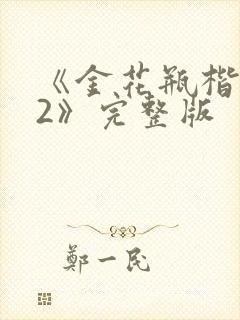 《金花瓶楷
2》完整版
鄭一民